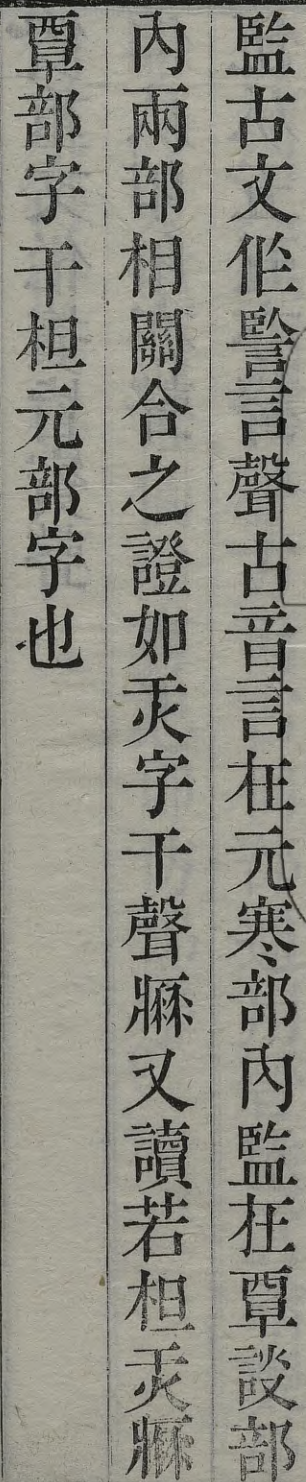 監古文作䛓言聲古音言在元寒部內監在覃談部
內兩部相關合之證如灻字干聲𤺺又讀若柦灻𤺺
覃部字干柦元部字也